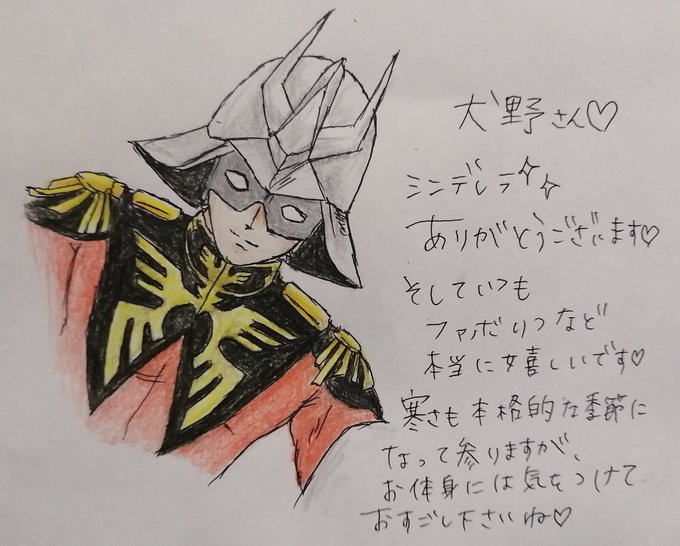 犬野さん♡
シンデレラ✨
ありがとうございます♡
そしていつも
ファボりつなど
本当に嬉しいです♡
寒さも本格的な季節に
なって参りますが、
お体身には気をつけて
おすごし下さいね♡